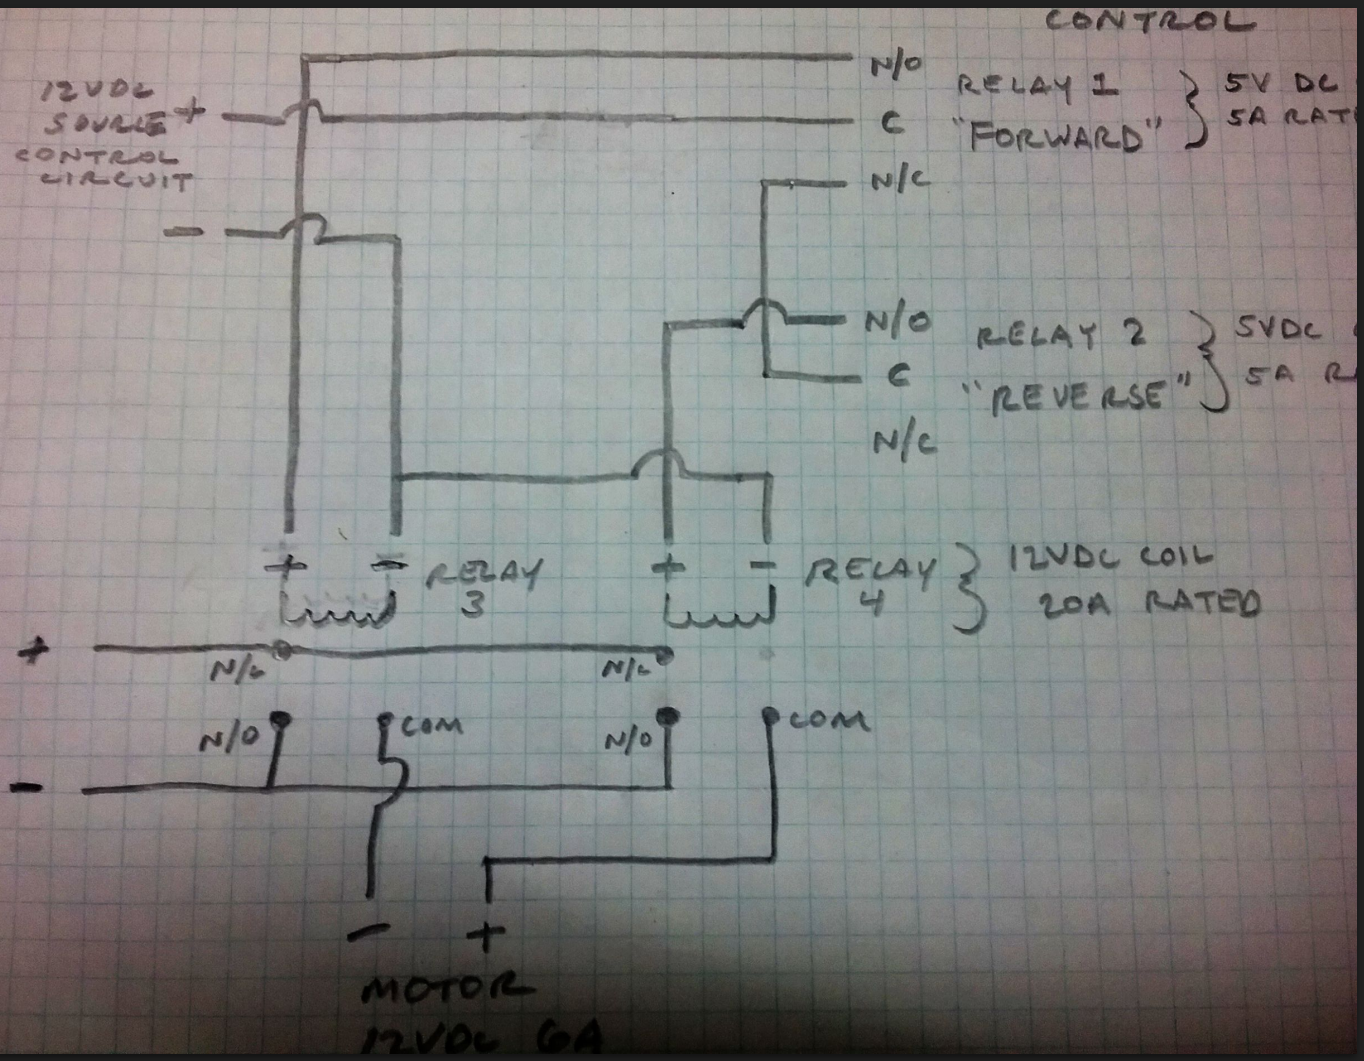 CONTROL
N/O
12VDC
SOURCE +
CONTROL
CIRCUIT
C
RELAY 1
"FORWARD"
5V DC
5A RAT
N/C
-
N/O
C
N/C
RELAY 2
"REVERSE"
5VDC
5A R
+ - RELAY
3
+ - RELAY
4
12VDC COIL
20A RATED
+
N/C
N/C
N/O
COM
N/O
COM
-
- +
MOTOR
12VDC 6A